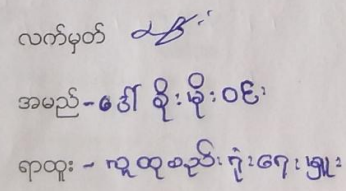 လက်မှတ်
အမည် - ဒေါ် စိုးမိုးဝေ
ရာထူး - လူထုစည်းရုံးရေးမှူး